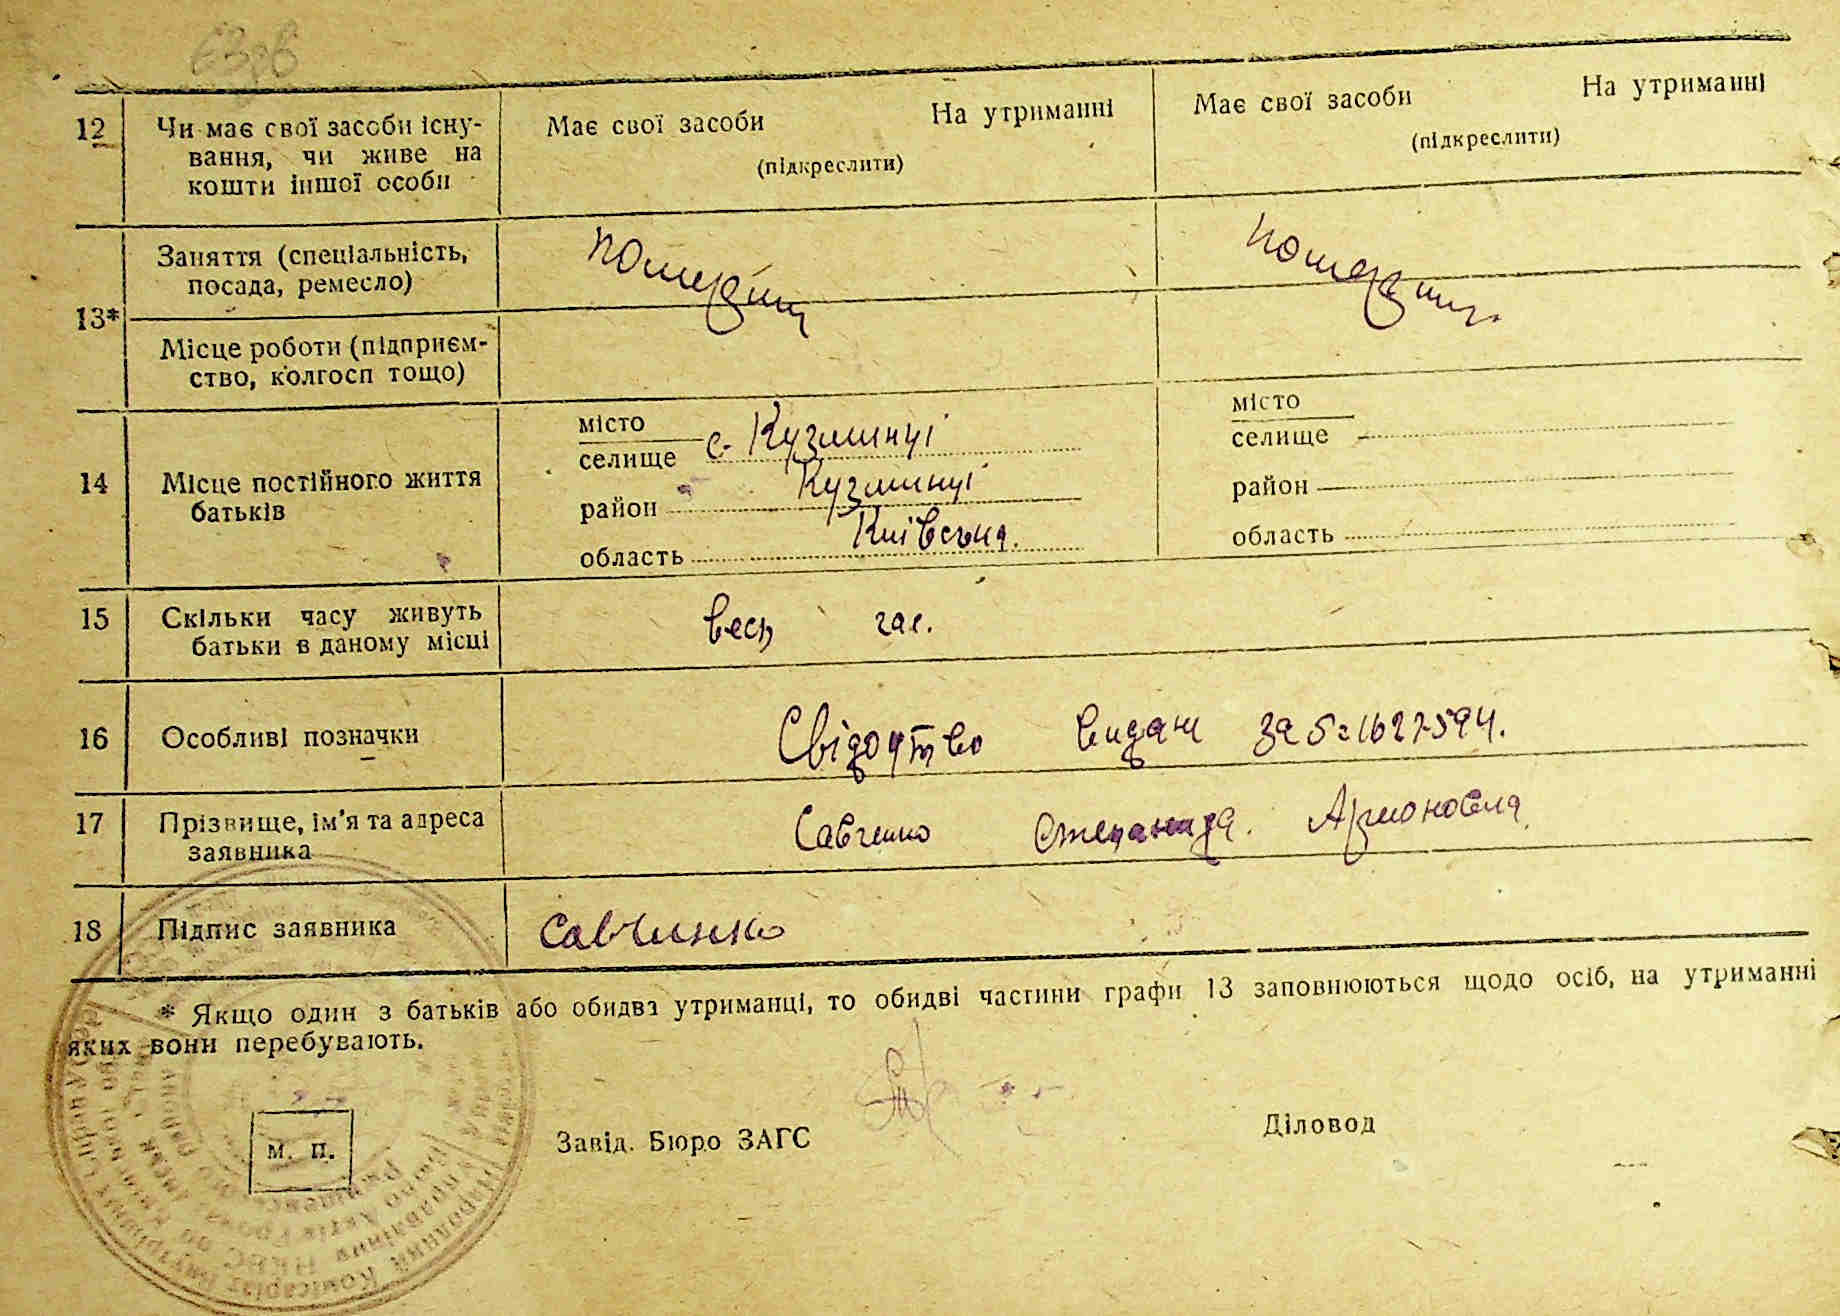 63рв
12 Чи має свої засоби існу- Має свої засоби На утриманні Має свої засоби На утриманні
вання, чи живе на (підкреслити) (підкреслити)
кошти іншої особи
Заняття (спеціальність,
посада, ремесло)
13*
Місце роботи (підприєм-
ство, колгосп тощо)
місто місто
селище с. Кузминці селище
14 Місце постійного життя
батьків
район Кузминці район
область Київська. область
15 Скільки часу живуть весь час.
батьки в даному місці
16 Особливі позначки Свідоцтво видан за 5=1627594.
17 Прізвище, ім'я та адреса Савченко Степанида.
заявника
18 Підпис заявника Савченко
* Якщо один з батьків або обидва утриманці, то обидві частини графи 13 заповнюються щодо осіб, на утриманні
яких вони перебувають.
м. п.
Завід. Бюро ЗАГС Діловод